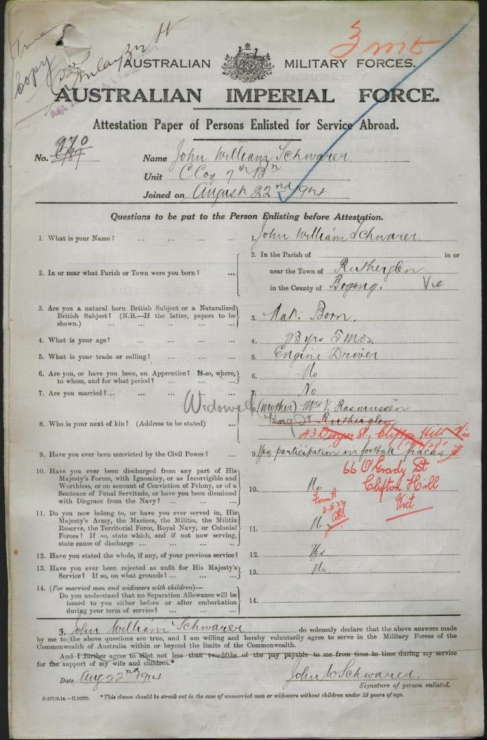 Copy
3 mt
AUSTRALIAN MILITARY FORCES.
AUSTRALIAN IMPERIAL FORCE.
Attestation Paper of Persons Enlisted for Service Abroad.
No. 970
Name John William Schwarer
Unit C Coy 7th Bn
Joined on August 22nd 1914
Questions to be put to the Person Enlisting before Attestation.
1. What is your Name? ... ... ... ...
1. John William Schwarer
2. In or near what Parish or Town were you born? ...
2. In the Parish of in or
near the Town of Rutherglen
in the County of Bogong. Vic
3. Are you a natural born British Subject or a Naturalized
British Subject? (N.B.—If the latter, papers to be
shown.) ... ... ... ...
3. Nat. Born.
4. What is your age? ... ... ... ...
4. 23 yrs 5 mos
5. What is your trade or calling? ... ... ...
5. Engine Driver
6. Are you, or have you been, an Apprentice? If so, where,
to whom, and for what period? ... ... ...
6. No
7. Are you married? ... ... ... ...
7. No
Widowed (mother) Mrs V. Rasmussen
8. Who is your next of kin? (Address to be stated) ...
8. Rutherglen
Clifton Hill Vic
9. Have you ever been convicted by the Civil Power? ...
9. Yes participation in football fracas
66 O'Grady St
Clifton Hill
Vict
10. Have you ever been discharged from any part of His
Majesty's Forces, with Ignominy, or as Incorrigible and
Worthless, or on account of Conviction of Felony, or of a
Sentence of Penal Servitude, or have you been dismissed
with Disgrace from the Navy? ... ... ...
10. No
11. Do you now belong to, or have you ever served in, His
Majesty's Army, the Marines, the Militia, the Militia
Reserve, the Territorial Force, Royal Navy, or Colonial
Forces? If so, state which, and if not now serving,
state cause of discharge ... ... ...
11. No
12. Have you stated the whole, if any, of your previous service?
12. Yes
13. Have you ever been rejected as unfit for His Majesty's
Service? If so, on what grounds? ... ... ...
13. No
14. (For married men and widowers with children)—
Do you understand that no Separation Allowance will be
issued to you either before or after embarkation
during your term of service?
14.
3. John William Schwarer do solemnly declare that the above answers made
by me to the above questions are true, and I am willing and hereby voluntarily agree to serve in the Military Forces of the
Commonwealth of Australia within or beyond the limits of the Commonwealth.
And I further agree to allot not less than two-fifths of the pay payable to me from time to time during my service
for the support of my wife and children.*
Date Aug 22nd 1914
John W Schwarer
Signature of person enlisted.
*This clause should be struck out in the case of unmarried men or widowers without children under 18 years of age.